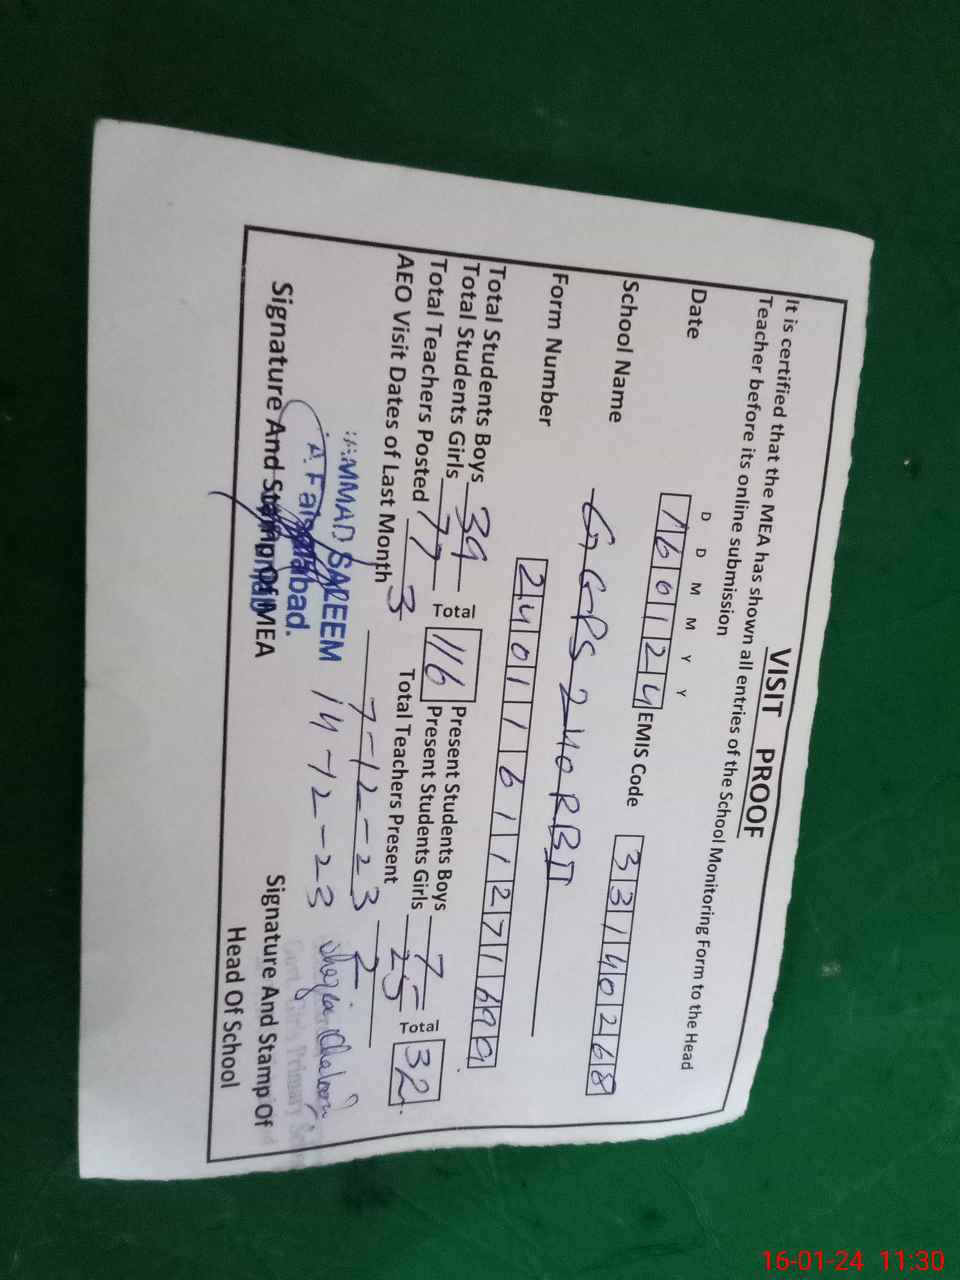 VISIT PROOF
It is certified that the MEA has shown all entries of the School Monitoring Form to the Head
Teacher before its online submission
D D M M Y Y
Date 160124 EMIS Code 33140268
School Name GGPS 240 RBI
Form Number 24011611271699
Total Students Boys 39 Present Students Boys 7
Total Students Girls 77 Total 116 Present Students Girls 25 Total 32
Total Teachers Posted 3 Total Teachers Present
AEO Visit Dates of Last Month 7-12-23
AMMAD SALEEM 14-12-23
Faisalabad.
Signature And Stamp Of MEA
Signature And Stamp Of
Head Of School
16-01-24 11:30